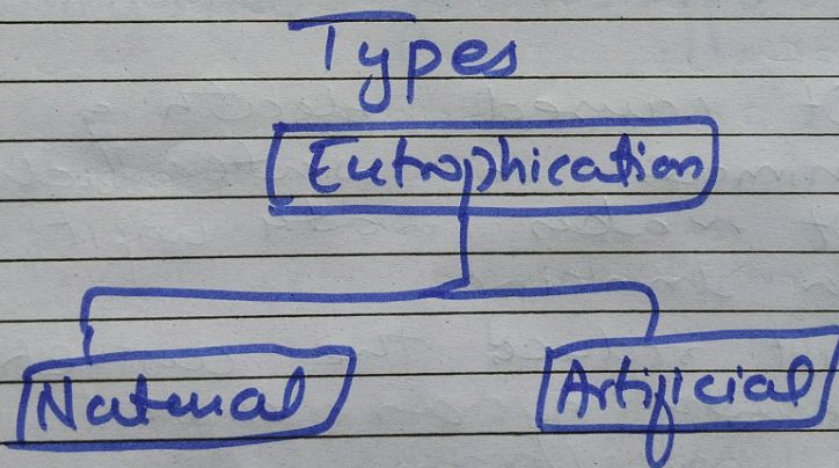 Types
Eutrophication
Natural
Artificial